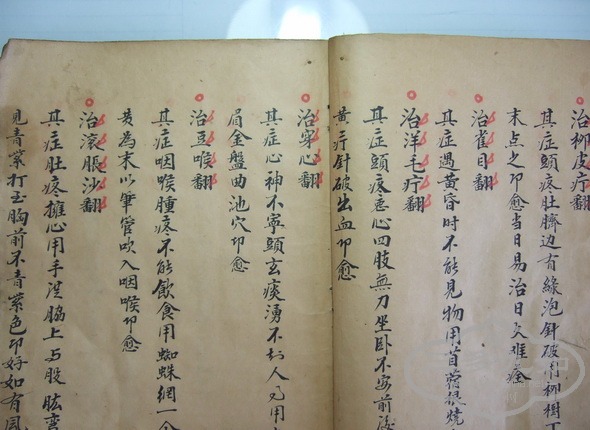 治柳皮疔翻
其症頭疼肚臍边有綠泡針破用柳樹丁
末点之即愈当日易治日久难痊
治雀目翻
其症遇黃昏时不能見物用苜蓿根燒
治洋毛疔翻
其症頭疼恶心四肢無力坐卧不安前後
黄疔針破出血即愈
治穿心翻
其症心神不寧頭玄痰湧不知人用
眉金盤曲池穴即愈
治豆喉翻
其症咽喉腫疼不能飲食用蜘蛛網一个
为末以筆管吹入咽喉即愈
治滚腸沙翻
其症肚疼攡心用手 胳上与股肱弯
見青紫打玉胸前不青紫色即好如有